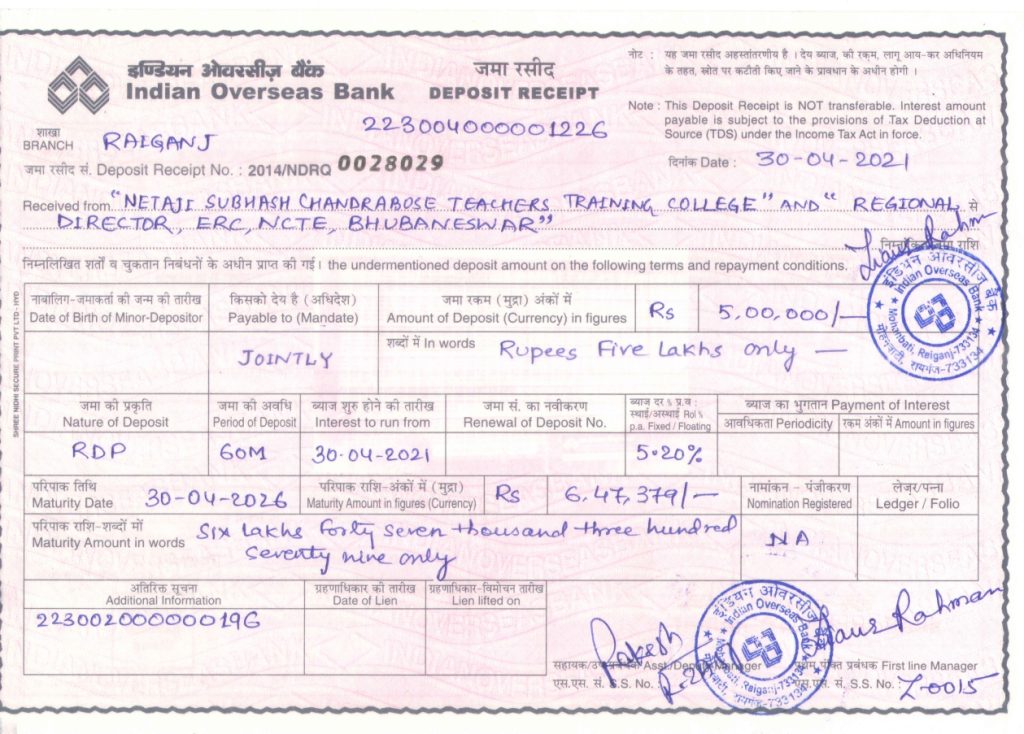 इण्डियन ओवरसीज़ बैंक
Indian Overseas Bank
जमा रसीद
DEPOSIT RECEIPT
नोट : यह जमा रसीद अहस्तांतरणीय है । देय ब्याज, की रक़म, लागू आय-कर अधिनियम
के तहत, स्रोत पर कटौती किए जाने के प्रावधान के अधीन होगी ।
Note : This Deposit Receipt is NOT transferable. Interest amount
payable is subject to the provisions of Tax Deduction at
Source (TDS) under the Income Tax Act in force.
223004000001226
शाखा
BRANCH RAIGANJ
जमा रसीद सं. Deposit Receipt No. : 2014/NDRQ 0028029
दिनांक Date : 30-04-2021
Received from "NETAJI SUBHASH CHANDRABOSE TEACHERS TRAINING COLLEGE" AND " REGIONAL से
DIRECTOR, ERC, NCTE, BHUBANESWAR"
निम्नलिखित शर्तों व चुकतान निबंधनों के अधीन प्राप्त की गई । the undermentioned deposit amount on the following terms and repayment conditions.
नाबालिग-जमाकर्ता की जन्म की तारीख
Date of Birth of Minor-Depositor
किसको देय है (अधिदेश)
Payable to (Mandate)
JOINTLY
जमा रकम (मुद्रा) अंकों में
Amount of Deposit (Currency) in figures
Rs 5,00,000/-
शब्दों में In words Rupees Five Lakhs only —
जमा की प्रकृति
Nature of Deposit
RDP
जमा की अवधि
Period of Deposit
60M
ब्याज शुरु होने की तारीख
Interest to run from
30-04-2021
जमा सं. का नवीकरण
Renewal of Deposit No.
ब्याज दर % प्र.व :
स्थाई/अस्थाई RoI %
p.a. Fixed / Floating
5.20%
ब्याज का भुगतान Payment of Interest
आवधिकता Periodicity
रकम अंकों में Amount in figures
परिपाक तिथि
Maturity Date 30-04-2026
परिपाक राशि-अंकों में (मुद्रा)
Maturity Amount in figures (Currency)
Rs 6,47,379/-
नामांकन - पंजीकरण
Nomination Registered
NA
लेज़र/पन्ना
Ledger / Folio
परिपाक राशि-शब्दों मों
Maturity Amount in words
Six Lakhs forty seven thousand three hundred
Seventy nine only
अतिरिक्त सूचना
Additional Information
223002000000196
ग्रहणाधिकार की तारीख
Date of Lien
ग्रहणाधिकार-विमोचन तारीख
Lien lifted on
Rakesh
Rahman
Asst./Deputy Manager
प्रबंधक First line Manager
एस.एस. सं. S.S. No.
एस.एस. सं. S.S. No. : Z-0015
इंडियन ओवरसीज बैंक
Indian Overseas Bank
Mohunbati, Raiganj-733134
SHREE NIDHI SECURE PRINT PVT LTD - HYD